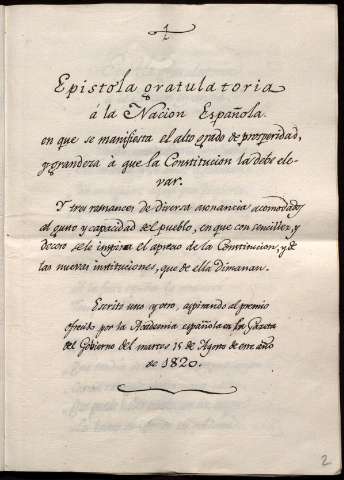 Epistola gratulatoria
á la Nacion Española
en que se manifiesta el alto grado de prosperidad,
y grandeza à que la Constitucion la debe ele-
var.
Y tres romances de diversa asonancia acomodados
al gusto y capacidad del pueblo, en que con sencillez, y
decoro se le inspira el aprecio de la Constitucion, y de
las nuevas instituciones, que de ella dimanan.
Escrito uno y otro, aspirando al premio
ofrecido por la Academia española en la Gaceta
del Gobierno del martes 15 de Agosto de este año
de 1820.
2